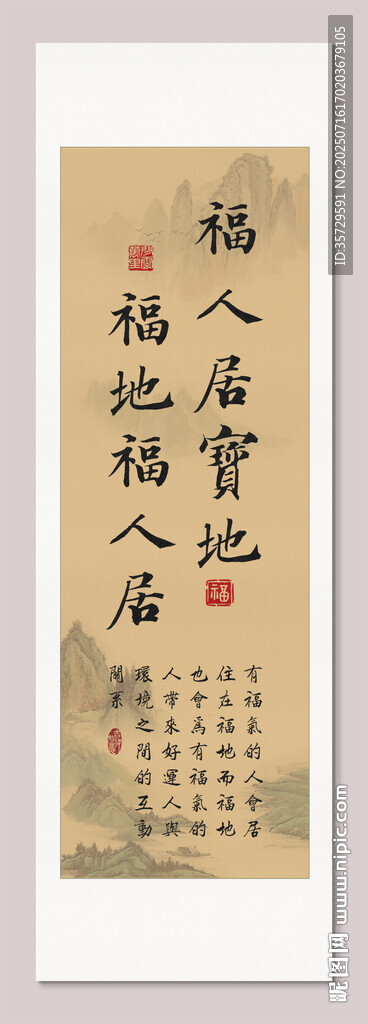 福人居寶地
福地福人居
福
有福氣的人會居
住在福地而福地
也會爲有福氣的
人帶來好運人與
環境之間的互動
關系
ID:35729591 NO:20250716170203679105
昵图网 www.nipic.com